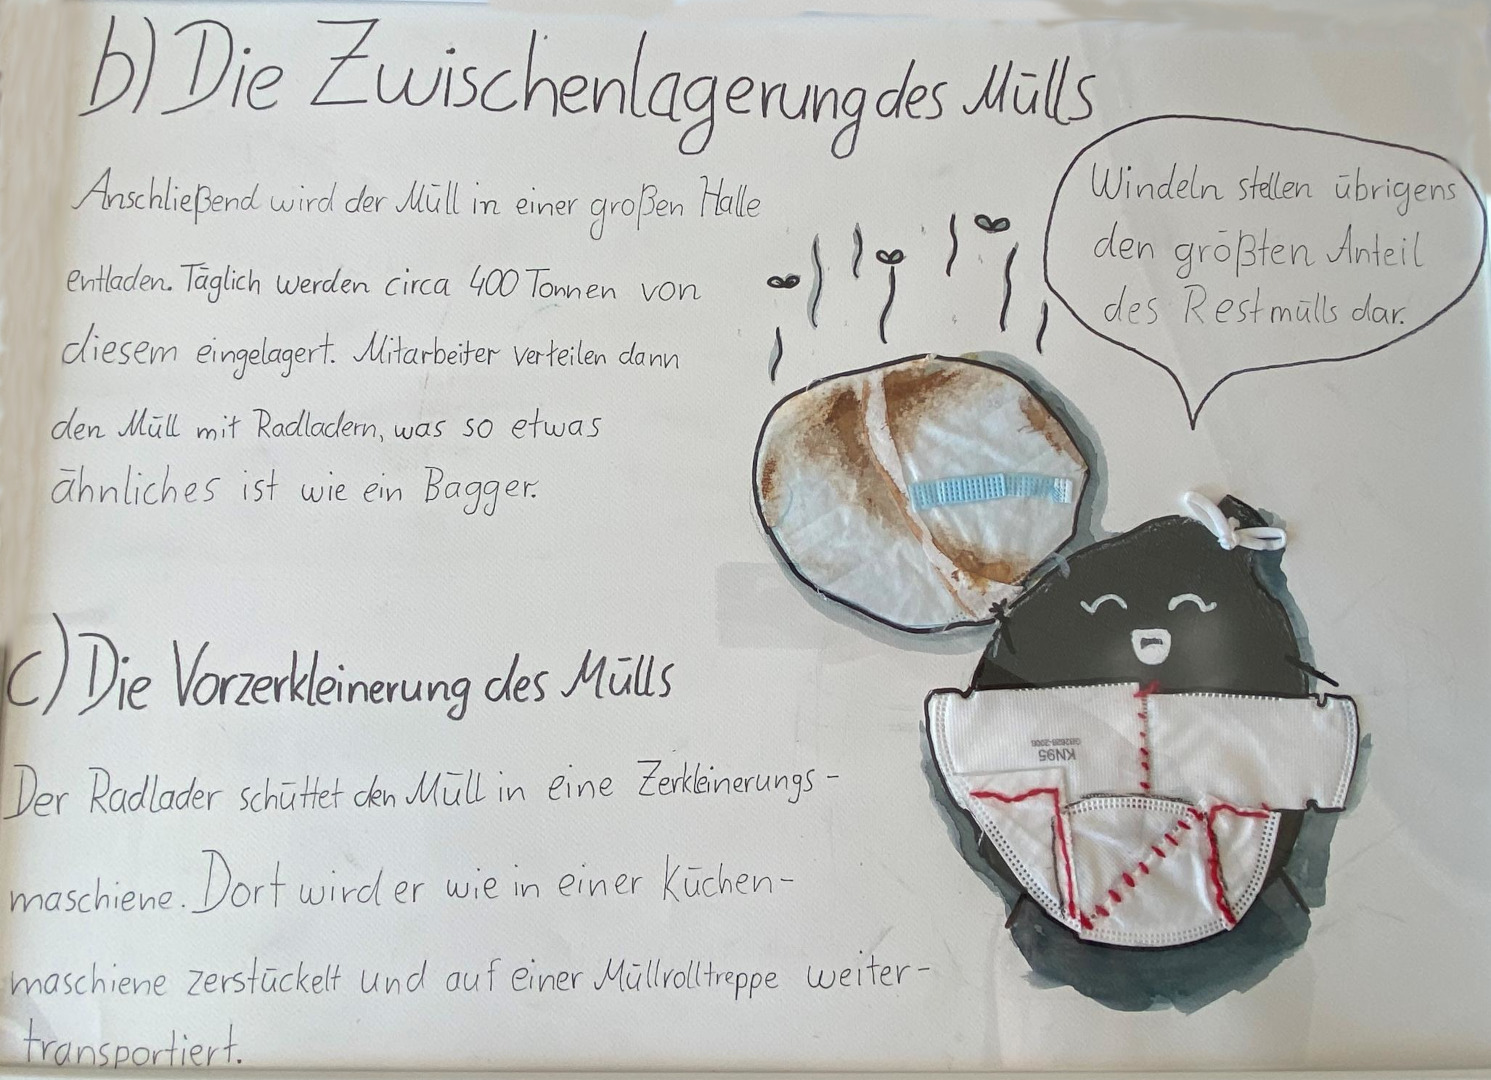 b) Die Zwischenlagerung des Mülls
Anschließend wird der Müll in einer großen Halle
entladen. Täglich werden circa 400 Tonnen von
diesem eingelagert. Mitarbeiter verteilen dann
den Müll mit Radladern, was so etwas
ähnliches ist wie ein Bagger.
Windeln stellen übrigens
den größten Anteil
des Restmülls dar.
KN95
c) Die Vorzerkleinerung des Mülls
Der Radlader schüttet den Müll in eine Zerkleinerungs-
maschiene. Dort wird er wie in einer Küchen-
maschiene zerstückelt und auf einer Müllrolltreppe weiter-
transportiert.